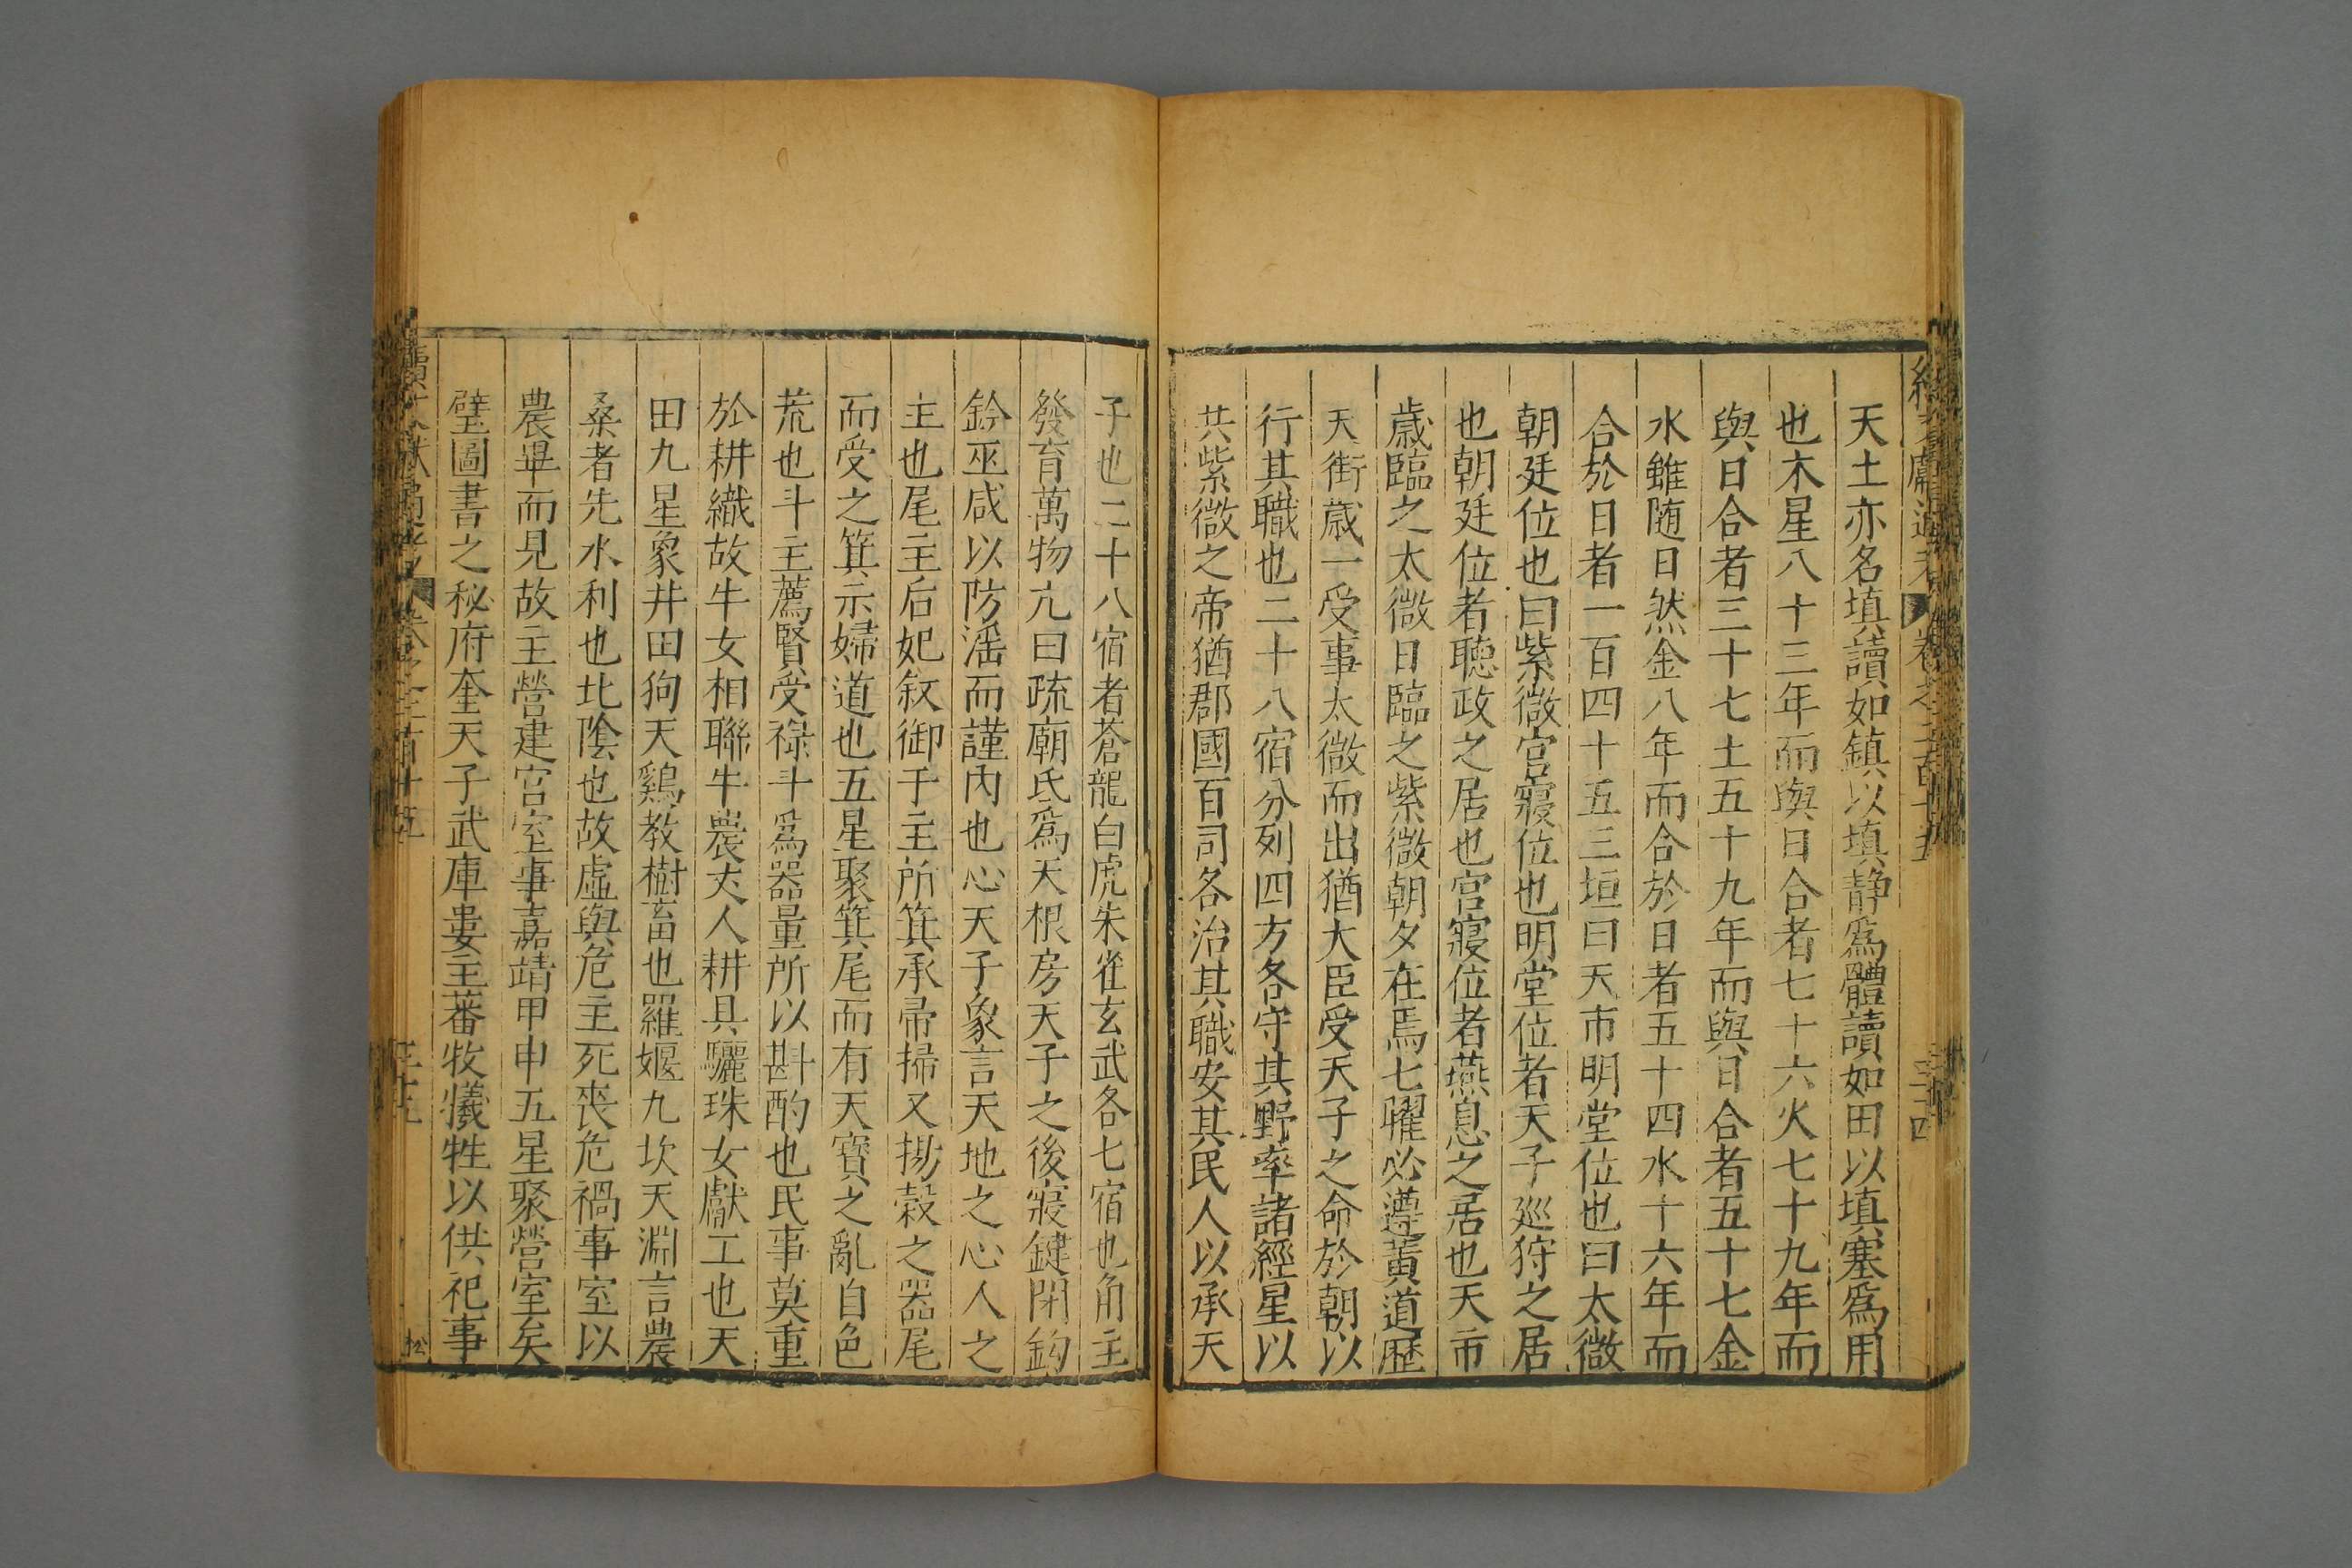 天土亦名填讀如鎮以填靜爲體讀如田以填塞爲用
也木星八十三年而與日合者七十六火七十九年而
與日合者三十七土五十九年而與日合者五十七金
水雖随日然金八年而合於日者五十四水十六年而
合於日者一百四十五三垣曰天市明堂位也曰太微
朝廷位也曰紫微宮寢位也明堂位者天子廵狩之居
也朝廷位者聴政之居也宮寢位者燕息之居也天市
歲臨之太微日臨之紫微朝夕在焉七曜必遵黃道歷
天街歲一受事太微而出猶大臣受天子之命於朝以
行其職也二十八宿分列四方各守其野率諸經星以
共紫微之帝猶郡國百司各治其職安其民人以承天
子也二十八宿者蒼龍白虎朱雀玄武各七宿也角主
發育萬物亢曰疏廟氐爲天根房天子之後寢鍵閉鈎
鈐巫咸以防滛而謹內也心天子象言天地之心人之
主也尾主后妃敘御于主所箕承帚掃又揚榖之器尾
而受之箕示婦道也五星聚箕尾而有天寶之亂白色
荒也斗主薦賢受禄斗爲器量所以斟酌也民事莫重
於耕織故牛女相聯牛農丈人耕具驪珠女獻工也天
田九星象井田狗天鷄教樹畜也羅堰九坎天淵言農
桑者先水利也北隂也故虛與危主死喪危禍事室以
農畢而見故主營建宫室事嘉靖甲申五星聚營室矣
璧圖書之秘府奎天子武庫婁主蕃牧犧牲以供祀事
卷之二百十五
三十五
松